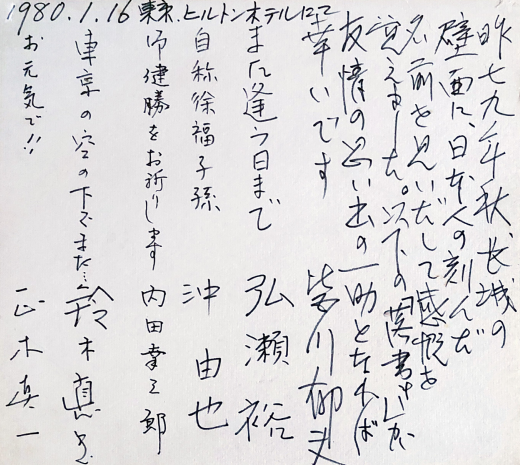 1980.1.16 東京.ヒルトンホテルにて
昨七九年秋、長城の
壁画に、日本人の刻んだ
名前を見いだして感慨を
覚えました。以下の
友情の思い出の一助となれば
幸いです
皆川郁夫
また逢う日まで
弘瀬裕
自称徐福子孫
沖由也
御健勝をお祈りします
内田幸三郎
東京の空の下でまた…
鈴木
お元気で!!
正木真一